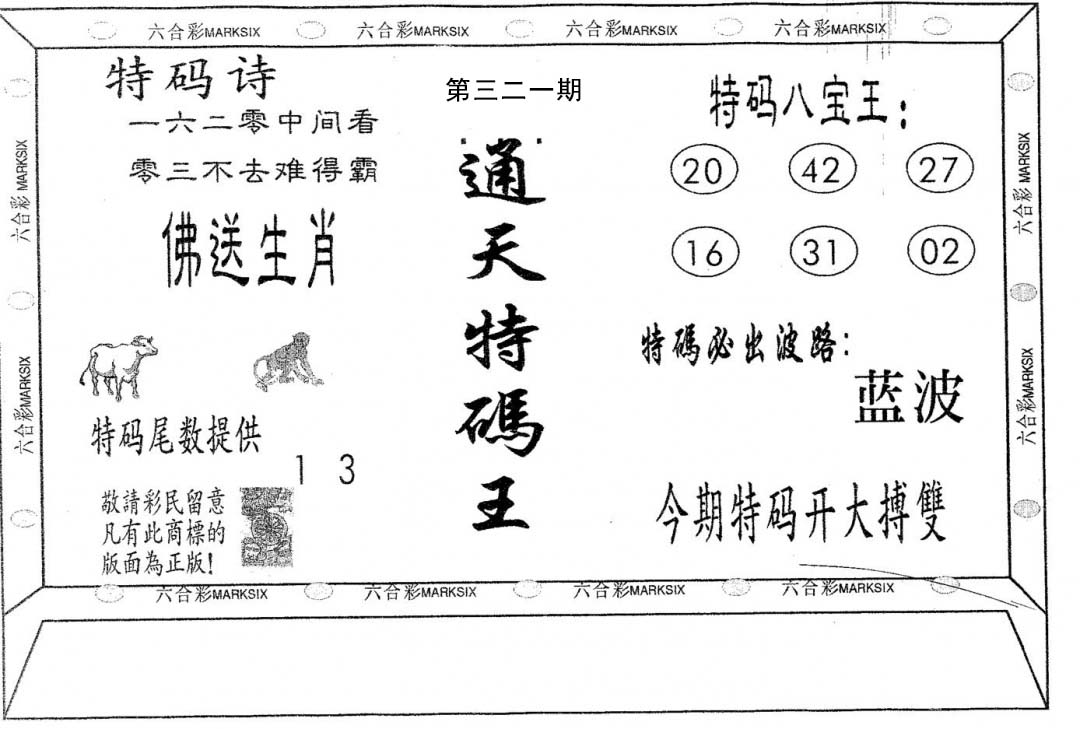 六合彩MARKSIX 六合彩MARKSIX 六合彩MARKSIX 六合彩MARKSIX
特码诗
一六二零中间看
零三不去难得霸
佛送生肖
特码尾数提供
1 3
敬請彩民留意
凡有此商標的
版面為正版!
第三二一期
通天特碼王
特码八宝王:
20 42 27
16 31 02
特碼必出波路:
蓝波
今期特码开大搏雙
六合彩 MARKSIX
六合彩MARKSIX
六合彩 MARKSIX
六合彩MARKSIX
六合彩MARKSIX 六合彩MARKSIX 六合彩MARKSIX 六合彩MARKSIX